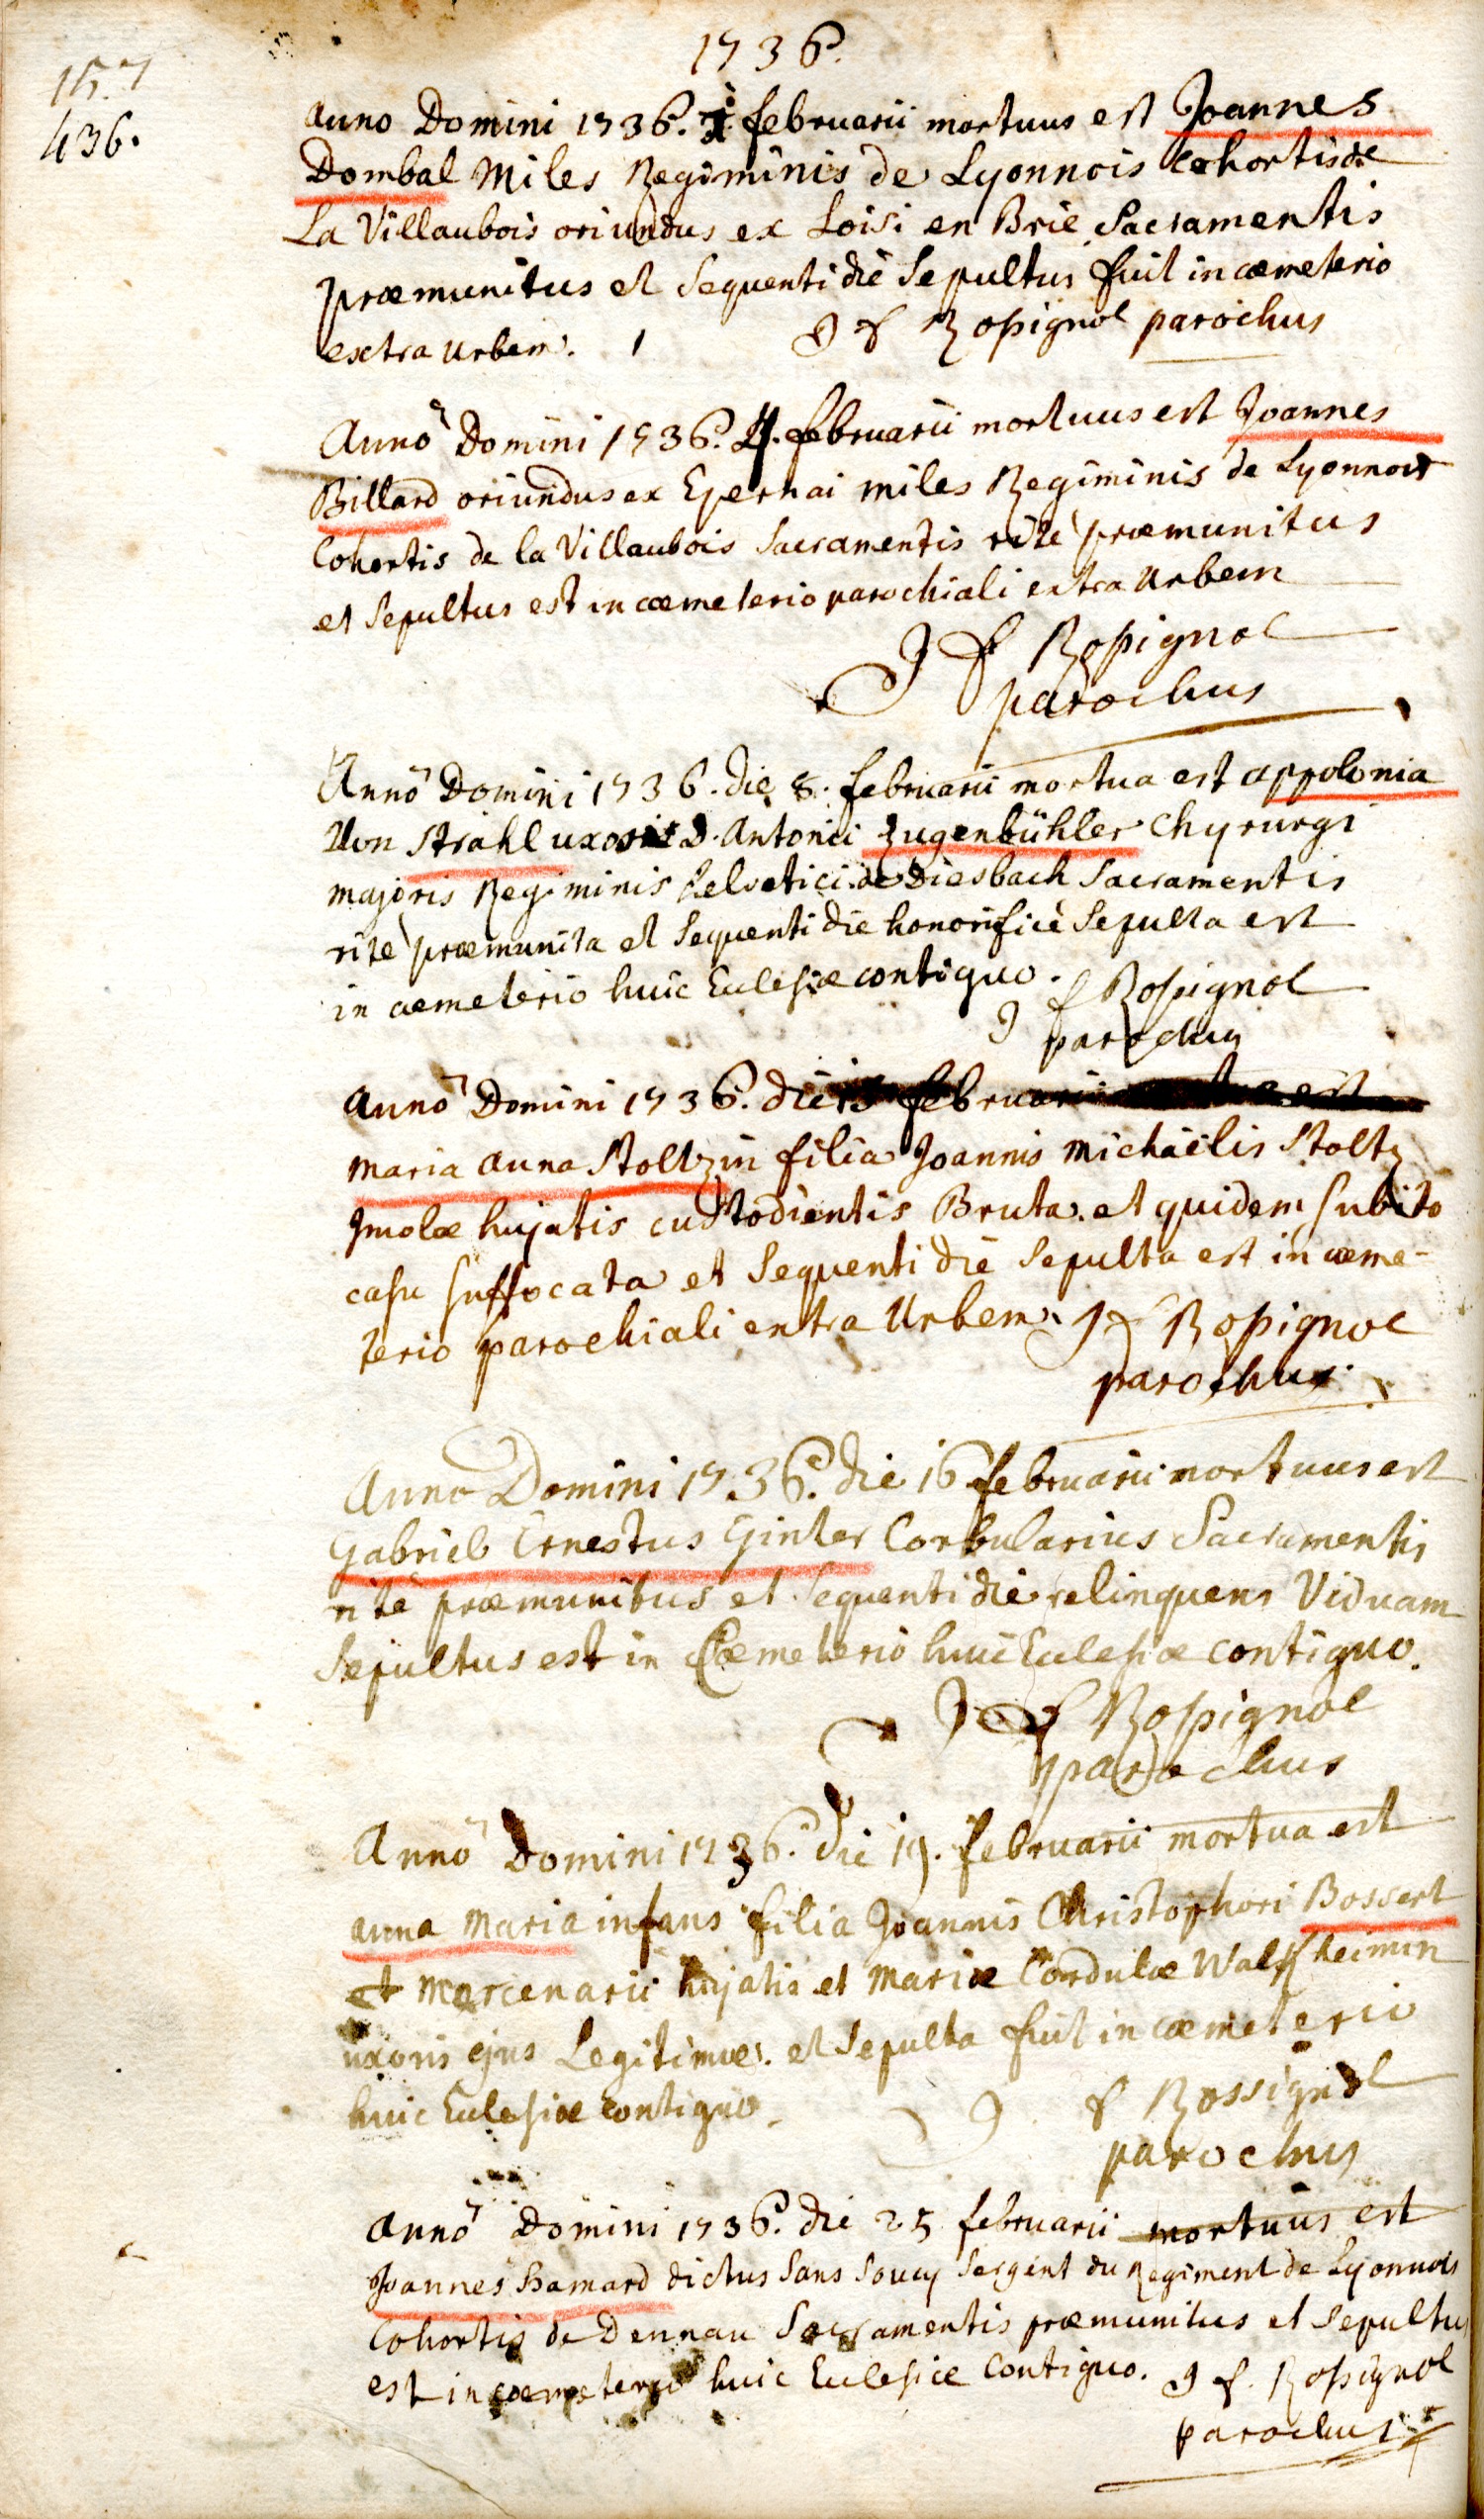 1736.
157
436.
Anno Domini 1736. 1 februarii mortuus est Joannes
Dombal Miles Regiminis de Lyonnois Cohortis de
La Villaubois oriundus ex Loisi en Brie Sacramentis
præmunitus et sequenti die sepultus fuit in cæmeterio
extra urbem. J f Rossignol parochus
Anno Domini 1736. 4. februarii mortuus est Joannes
Billard oriundus ex Epernai miles Regiminis de Lyonnois
Cohortis de la Villaubois Sacramentis rite præmunitus
et Sepultus est in cæmeterio parochiali extra Urbem
J f Rossignol
parochus
Anno Domini 1736. die 8. februarii mortua est appolonia
Von Strahl uxor D. Antonii Zugenbühler Chyrurgi
majoris Regiminis helvetici de Diesbach Sacramentis
rite præmunita et sequenti die honorifice Sepulta est
in cæmeterio huic Eclesiæ contiguo.
J f Rossignol
parochus
Anno Domini 1736. die 15 februarii est
Maria Anna Stoltzin filia Joannis Michaëlis Stoltz
Jncolæ hujatis custodientis Bruta. et quidem subito
casu suffocata et Sequenti die sepulta est in cæme-
terio parochiali extra Urbem. J f Rossignol
parochus.
Anno Domini 1736. die 16 februarii mortuus est
Gabriel Ernestus Ginter Corbularius Sacramentis
rite præmunitus et sequenti die relinquens Viduam
Sepultus est in Cæmeterio huic Eclesiæ contiguo.
J f Rossignol
parochus
Anno Domini 1736. die 19. februarii mortua est
Anna Maria infans filia Joannis Christophori Bossert
et Mercenarii hujatis et Mariæ Cordulæ
uxoris ejus Legitimæ. et sepulta fuit in cæmeterio
huic Eclesiæ contiguo.
J f Rossignol
parochus
Anno Domini 1736. die 25 februarii mortuus est
Joannes Hamard dictus Sans Soucy Sergent du Regiment de Lyonnois
Cohortis de Dennau Sacramentis præmunitus et sepultus
est in cæmeterio huic Eclesiæ Contiguo. J f. Rossignol
parochus